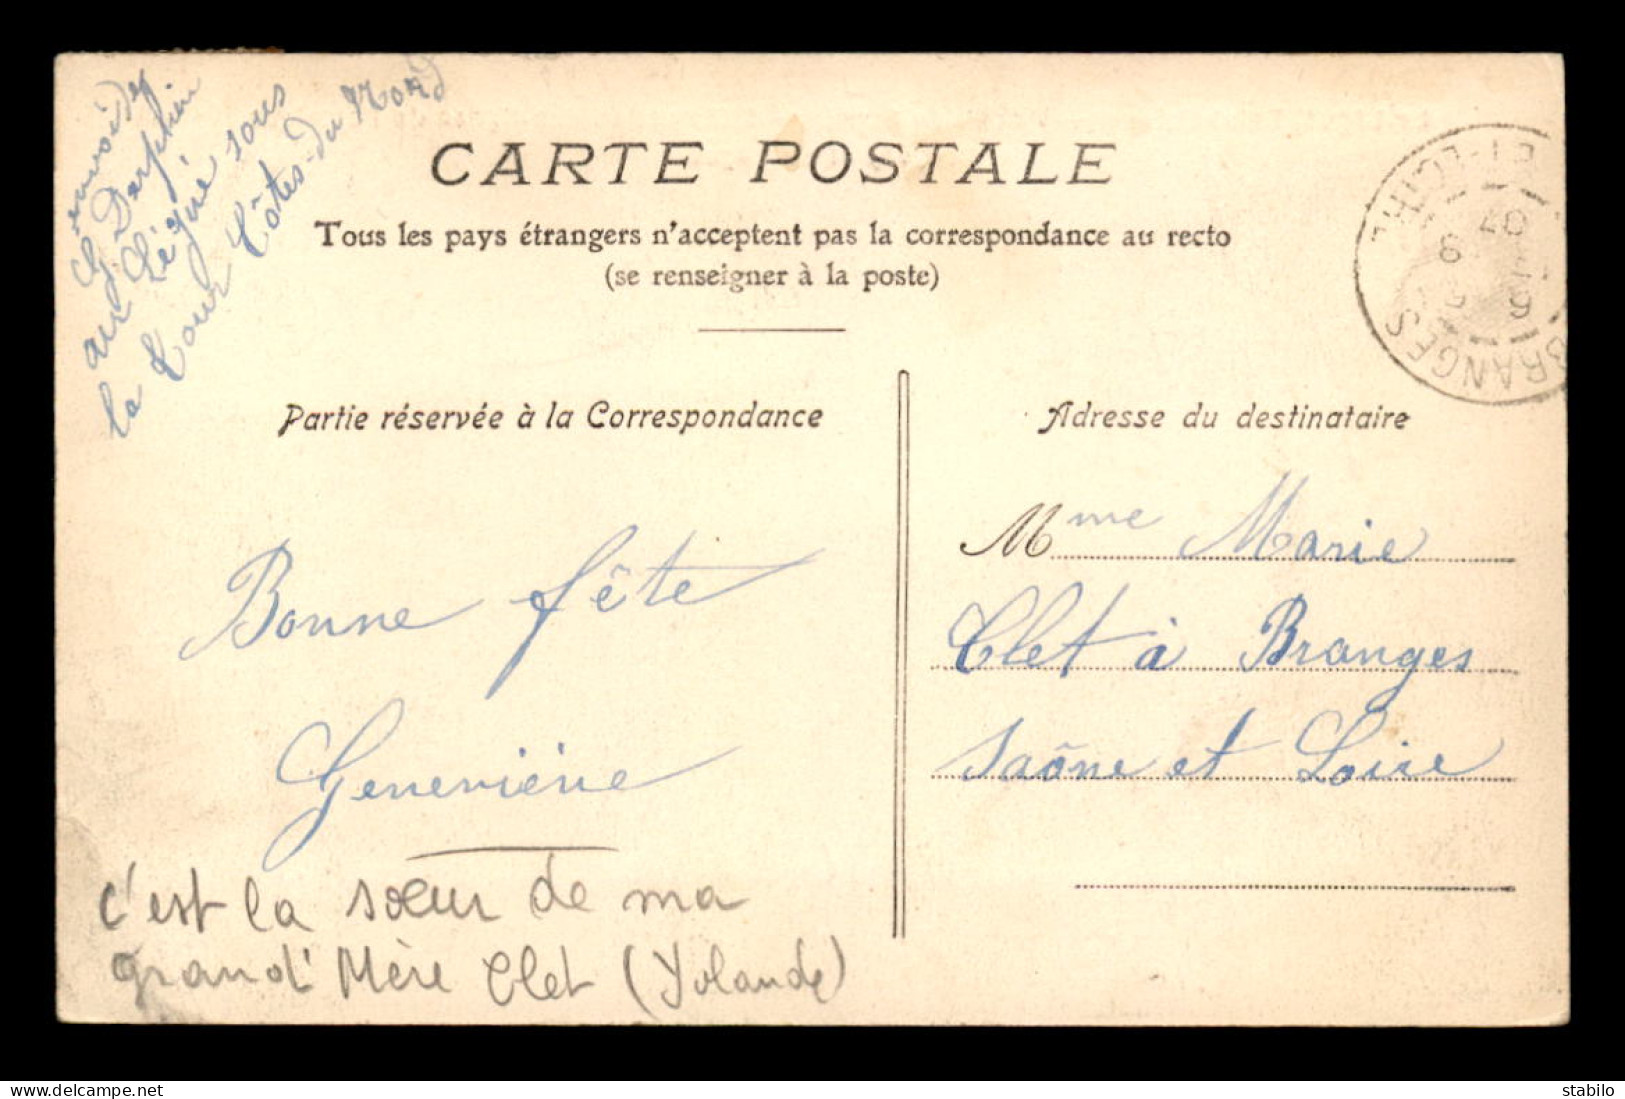 envoi de
G Dorphin
au Légué sous
la Tour Côtes-du-Nord
CARTE POSTALE
Tous les pays étrangers n'acceptent pas la correspondance au recto
(se renseigner à la poste)
BRANGES
Partie réservée à la Correspondance
Bonne fête
Geneviève
c'est la sœur de ma
grand' Mère Clet (Yolande)
Adresse du destinataire
Mme Marie
Clet à Branges
Saône et Loire
delcampe.net
stabilo